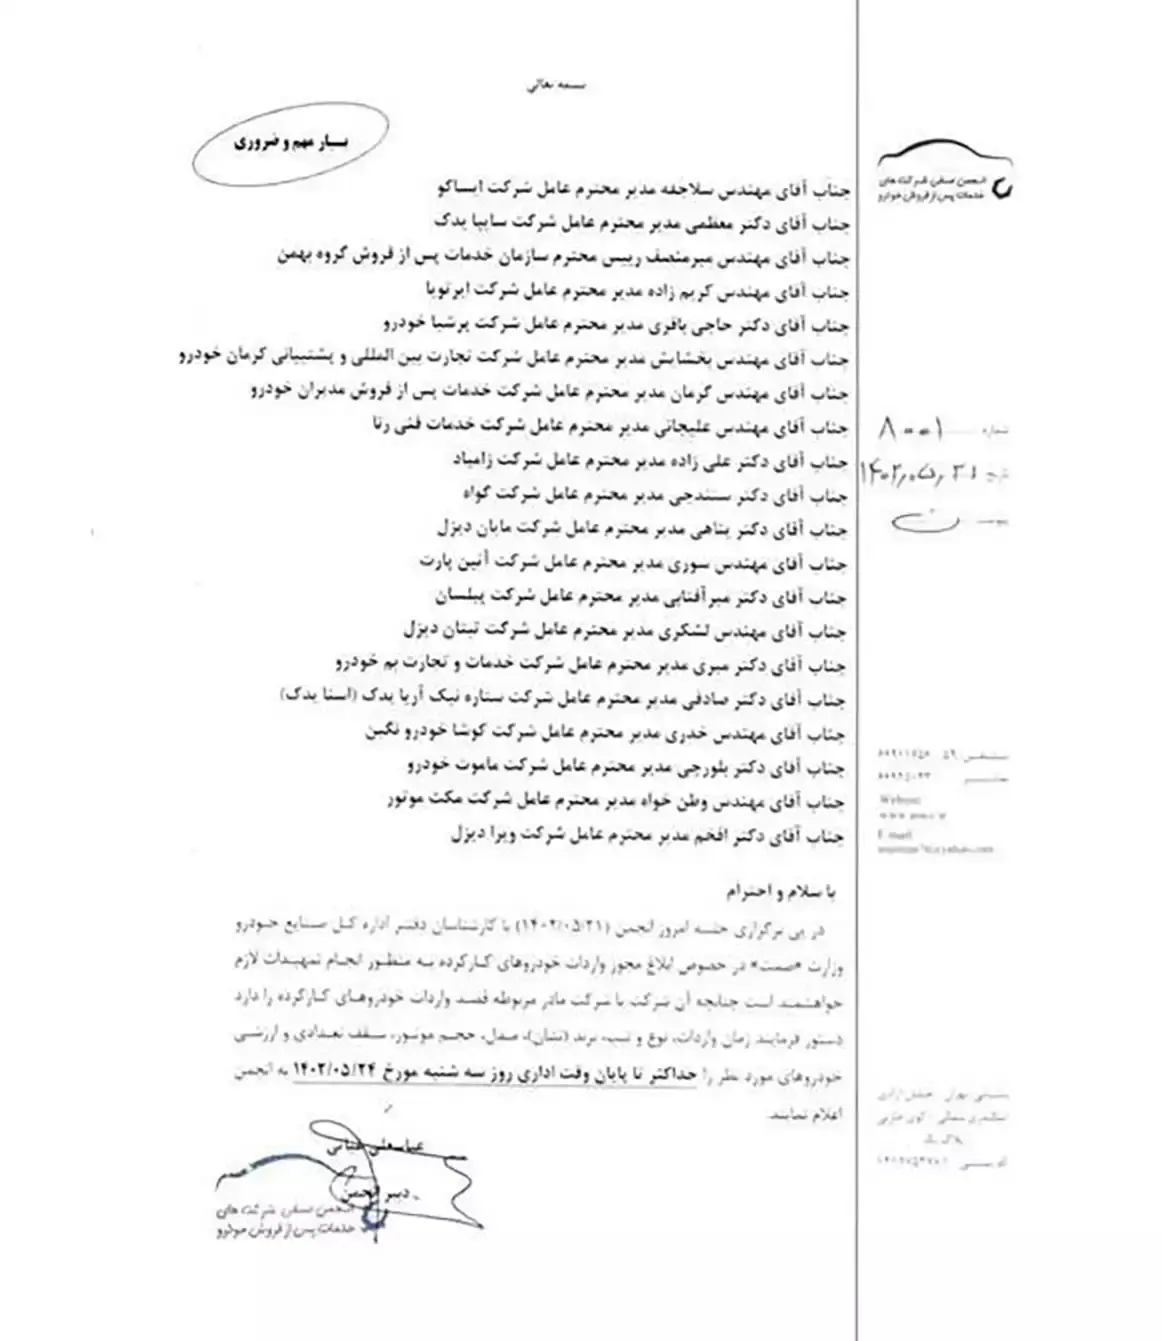 بسمه تعالی
بسیار مهم و ضروری
انجمن صنفی شرکت های
خدمات پس از فروش خودرو
جناب آقای مهندس سلاجقه مدیر محترم عامل شرکت ایساکو
جناب آقای دکتر معظمی مدیر محترم عامل شرکت سایپا یدک
جناب آقای مهندس میرمنصف رییس محترم سازمان خدمات پس از فروش گروه بهمن
جناب آقای مهندس کریم زاده مدیر محترم عامل شرکت ایرتویا
جناب آقای دکتر حاجی باقری مدیر محترم عامل شرکت پرشیا خودرو
جناب آقای مهندس بخشایش مدیر محترم عامل شرکت تجارت بین المللی و پشتیبانی کرمان خودرو
جناب آقای مهندس کرمان مدیر محترم عامل شرکت خدمات پس از فروش مدیران خودرو
جناب آقای مهندس علیجانی مدیر محترم عامل شرکت خدمات فنی رنا
جناب آقای دکتر علی زاده مدیر محترم عامل شرکت زامیاد
جناب آقای دکتر سنندجی مدیر محترم عامل شرکت گواه
جناب آقای دکتر پناهی مدیر محترم عامل شرکت مایان دیزل
جناب آقای مهندس سوری مدیر محترم عامل شرکت آتین پارت
جناب آقای دکتر میرآفتابی مدیر محترم عامل شرکت پیلسان
جناب آقای مهندس لشکری مدیر محترم عامل شرکت تبتان دیزل
جناب آقای دکتر میری مدیر محترم عامل شرکت خدمات و تجارت بم خودرو
جناب آقای دکتر صادقی مدیر محترم عامل شرکت ستاره نیک آریا یدک (استا یدک)
جناب آقای مهندس خدری مدیر محترم عامل شرکت کوشا خودرو نگین
جناب آقای دکتر بلورچی مدیر محترم عامل شرکت ماموت خودرو
جناب آقای مهندس وطن خواه مدیر محترم عامل شرکت مکث موتور
جناب آقای دکتر افخم مدیر محترم عامل شرکت ویرا دیزل
شماره ۸۰۰۱
تاریخ ۱۴۰۲,۰۵,۲۱
پیوست
Website
E-mail
با سلام و احترام
در پی برگزاری جلسه امروز انجمن (۱۴۰۲/۰۵/۲۱) با کارشناسان دفتر اداره کل صنایع خودرو
وزارت «صمت» در خصوص ابلاغ مجوز واردات خودروهای کارکرده به منظور انجام تمهیدات لازم
خواهشمند است چنانچه آن شرکت یا شرکت مادر مربوطه قصد واردات خودروهای کارکرده را دارد
دستور فرمایند زمان واردات، نوع و تیپ، برند (نشان)، مدل، حجم موتور، سقف تعدادی و ارزشی
خودروهای مورد نظر را حداکثر تا پایان وقت اداری روز سه شنبه مورخ ۱۴۰۲/۰۵/۲۴ به انجمن
اعلام نمایند.
دبیر انجمن
انجمن صنفی شرکت های
خدمات پس از فروش خودرو